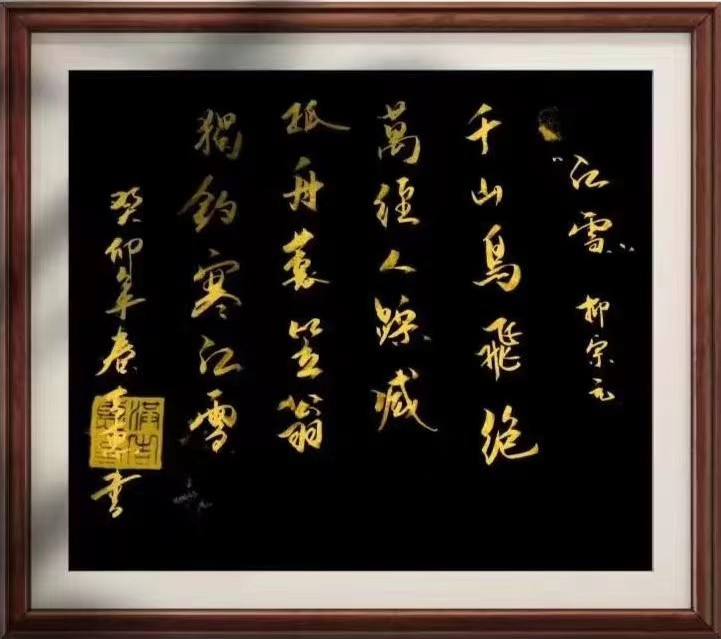 "江雪" 柳宗元
千山鳥飛絕
萬徑人踪滅
孤舟蓑笠翁
獨釣寒江雪
癸卯年春 書